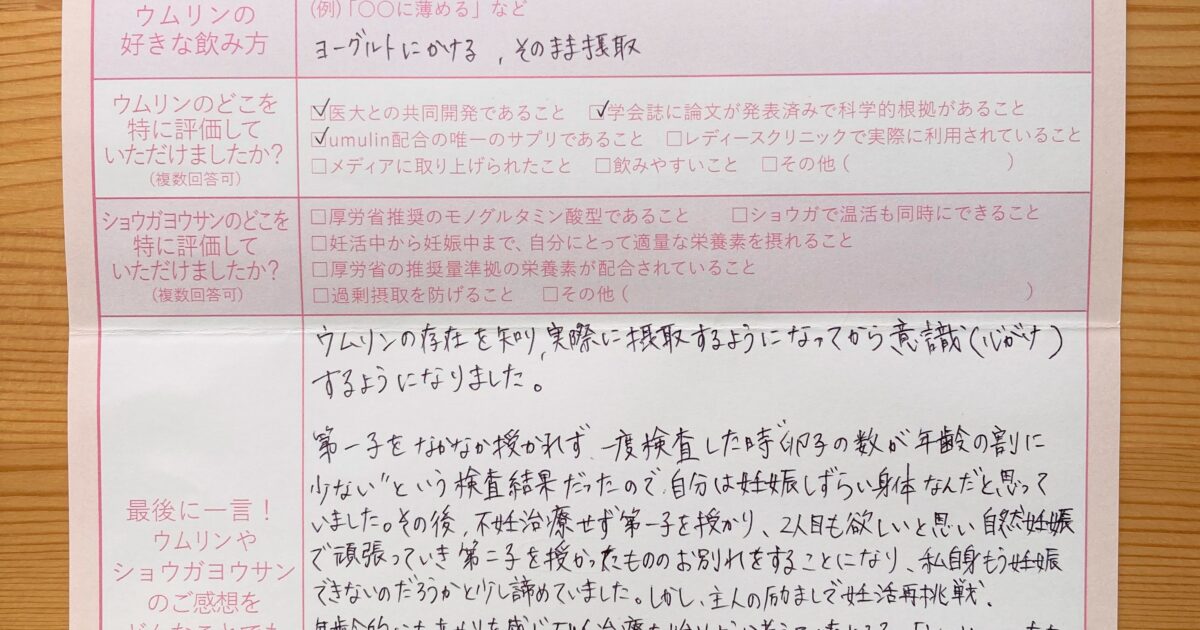 ウムリンの
好きな飲み方
(例)「〇〇に薄める」など
ヨーグルトにかける , そのまま摂取
ウムリンのどこを
特に評価して
いただけましたか?
(複数回答可)
☑医大との共同開発であること ☑学会誌に論文が発表済みで科学的根拠があること
☑umulin配合の唯一のサプリであること □レディースクリニックで実際に利用されていること
□メディアに取り上げられたこと □飲みやすいこと □その他 ( )
ショウガヨウサンのどこを
特に評価して
いただけましたか?
(複数回答可)
□厚労省推奨のモノグルタミン酸型であること □ショウガで温活も同時にできること
□妊活中から妊娠中まで、自分にとって適量な栄養素を摂れること
□厚労省の推奨量準拠の栄養素が配合されていること
□過剰摂取を防げること □その他 ( )
最後に一言!
ウムリンや
ショウガヨウサン
のご感想を
どんなことでも
ウムリンの存在を知り,実際に摂取するようになってから意識(心がけ)
するようになりました。
第一子をなかなか授かれず、一度検査した時“卵子の数が年齢の割に
少ない”という検査結果だったので、自分は妊娠しずらい身体なんだと思って
いました。その後、不妊治療せず第一子を授かり、2人目も欲しいと思い自然妊娠
で頑張っていき第二子を授かったもののお別れをすることになり、私自身もう妊娠
できないのだろうかと少し諦めていました。しかし、主人の励ましで妊活再挑戦.